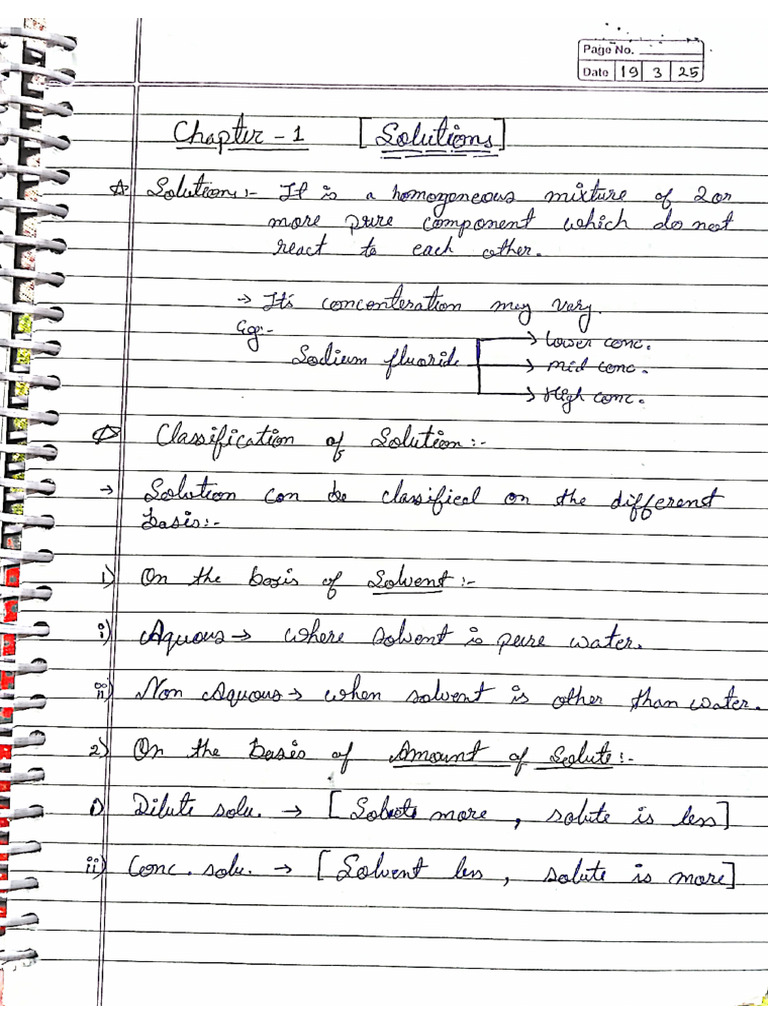 Page No.
Date 19 3 25
Chapter - 1 [Solutions]
☆ Solution:- It is a homogeneous mixture of 2 or
more pure component which do not
react to each other.
→ It's conconteration may vary.
Eg:-
Sodium fluoride → lower conc.
→ mid conc.
→ High conc.
☆ Classification of Solution:-
→ Solution can be classified on the different
basis:-
1) On the basis of Solvent:-
i) Aquous → where solvent is pure water.
ii) Non Aquous → when solvent is other than water.
2) On the basis of Amount of Solute:-
i) Dilute solu. → [Solute more, solute is less]
ii) Conc. solu. → [Solvent less, solute is more]